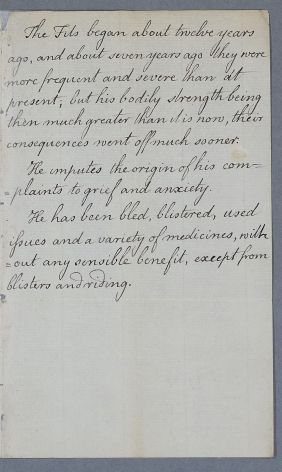 The Fits began about twelve years
ago, and about seven years ago they were
more frequent and severe than at
present, but his bodily strength being
then much greater than it is now, their
consequences went off much sooner.
He imputes the origin of his com=
=plaints to grief and anxiety.
He has been bled, blistered, used
issues and a variety of medicines, with
=out any sensible benefit, except from
blisters and riding.